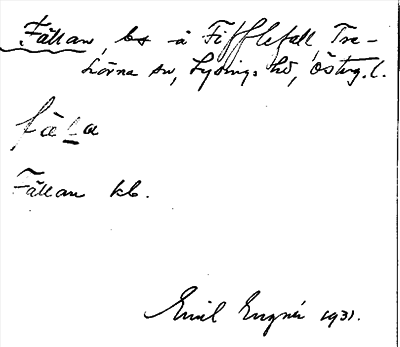 Fällan, bs å Fifflefall, Tre-
hörna sn, Lysings hd, Österg. l.
fäla
Fällan kb.
Emil Engnér 1931.